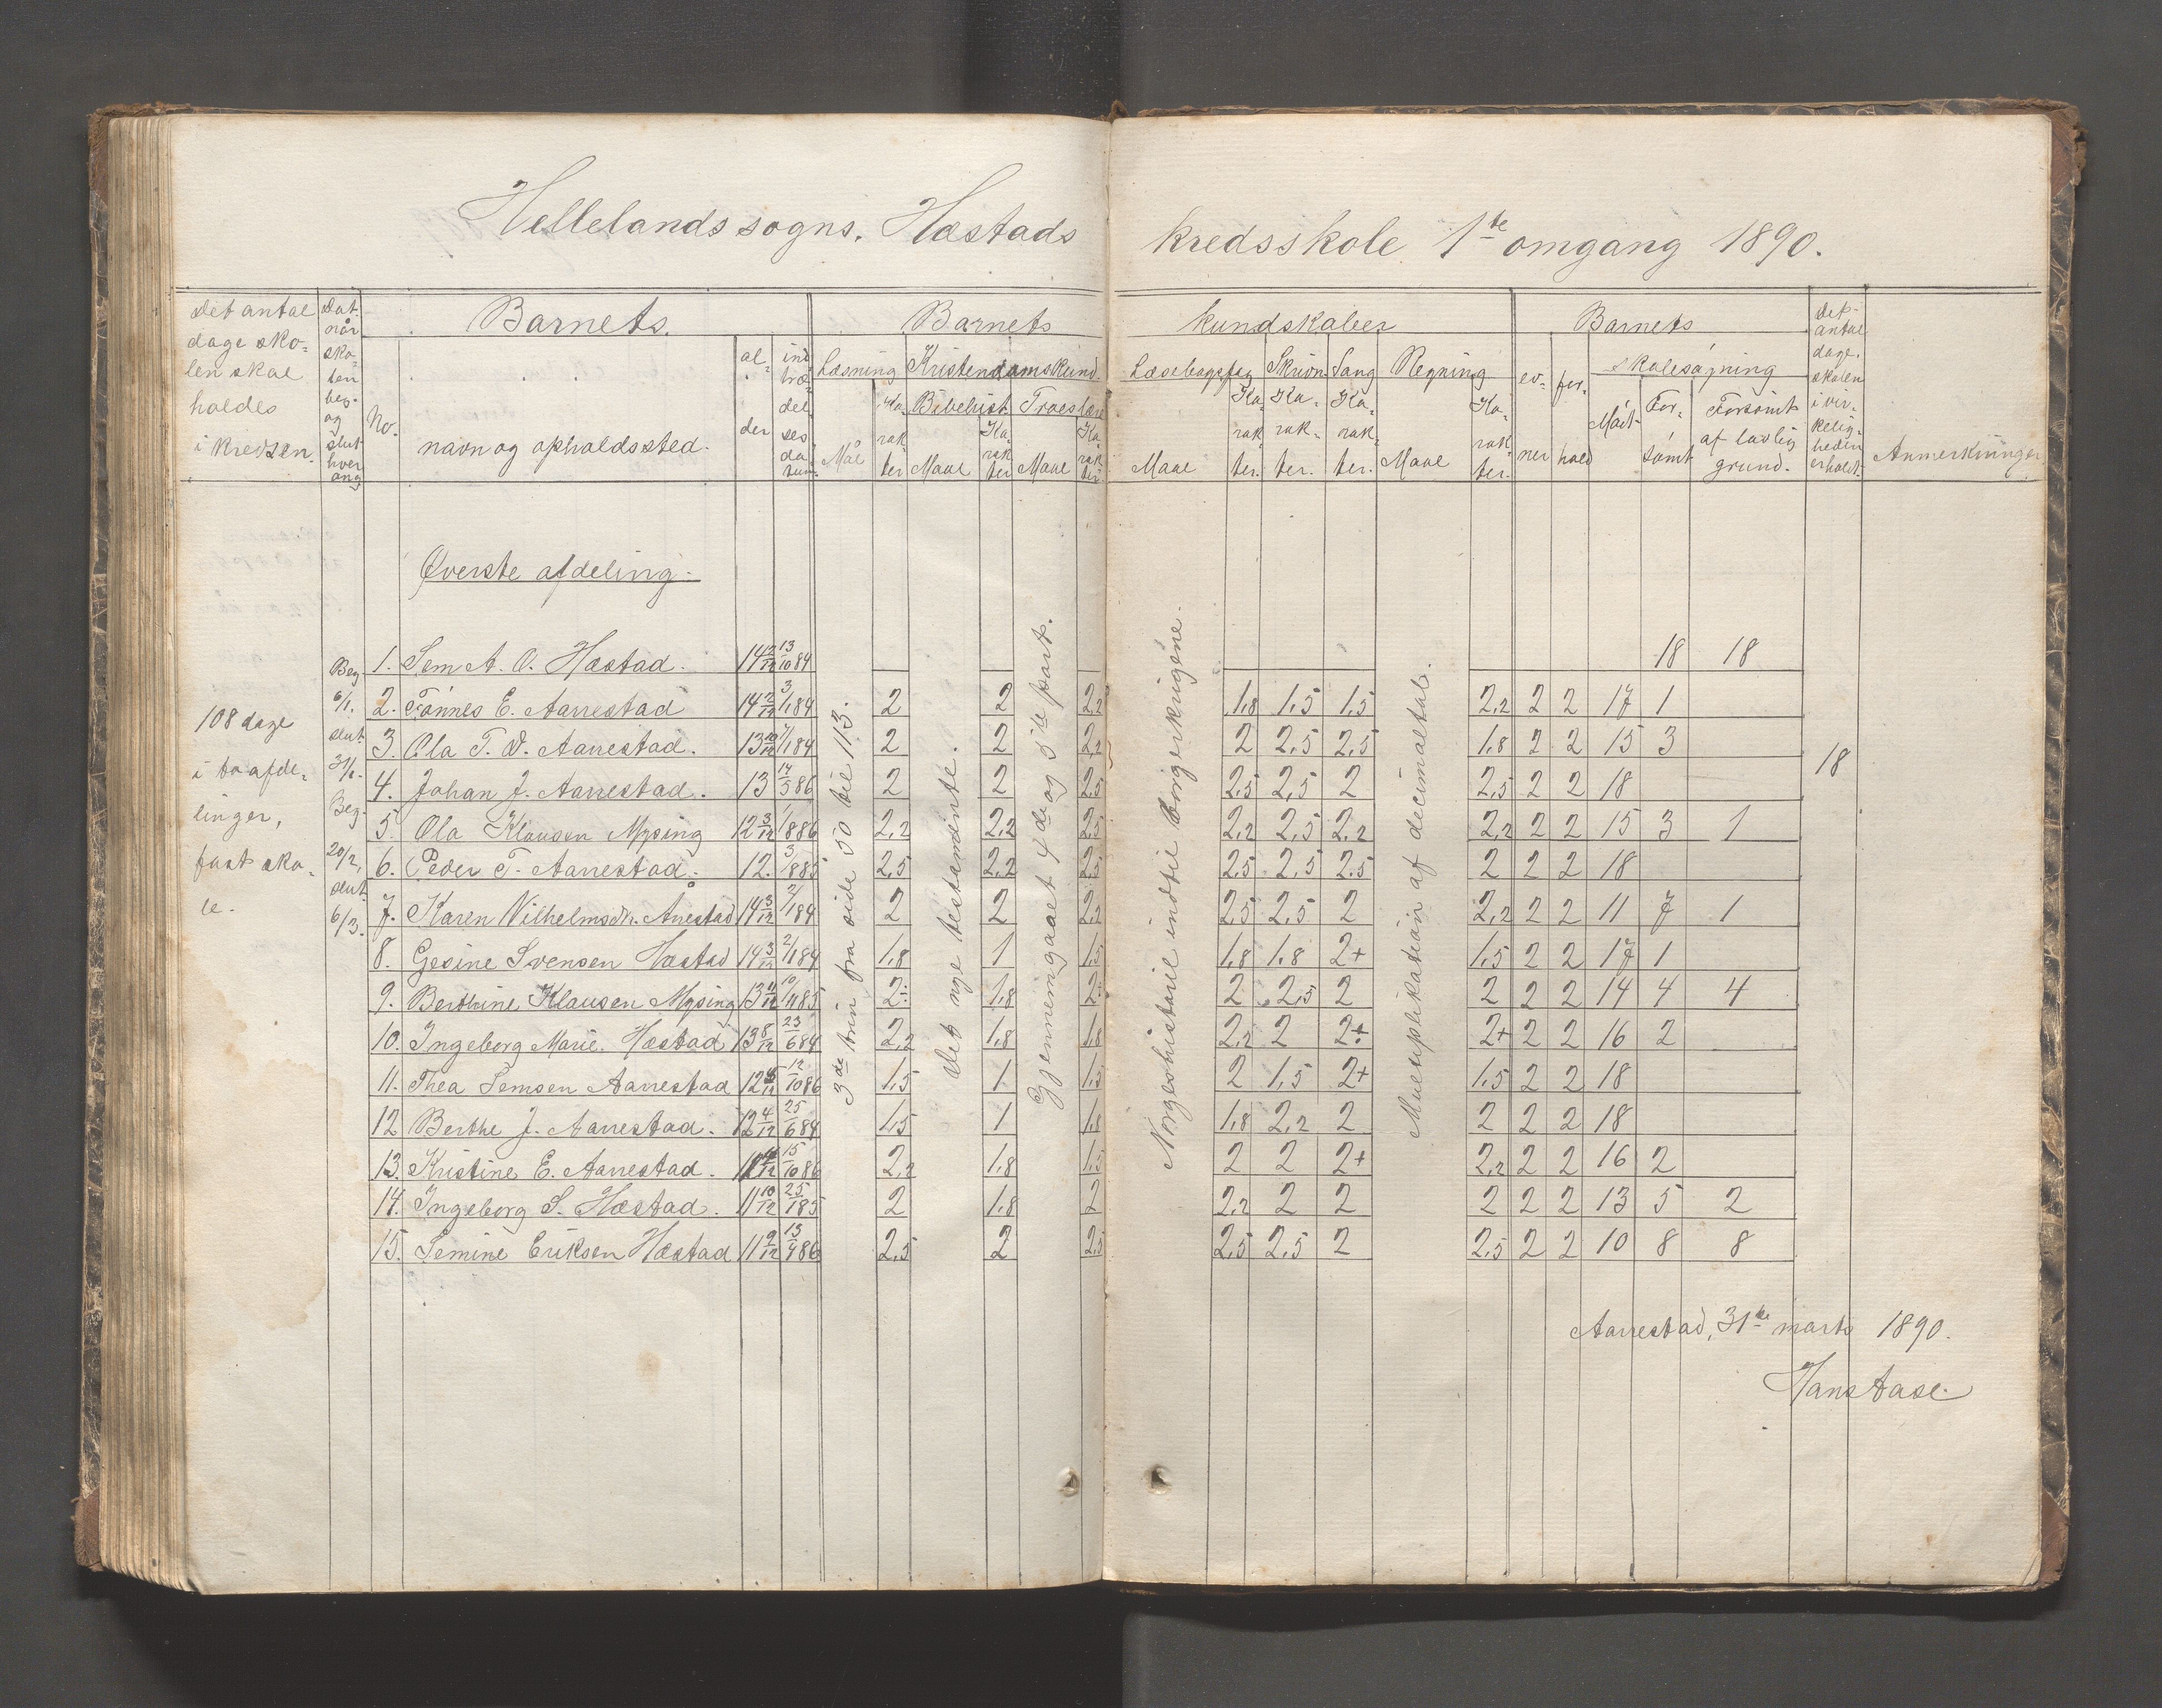 Hellelands sogns. Hæstads kredsskole 1ste omgang 1890.
Det antal dage skolen skal holdes i kredsen.
Dat. når skolen beg. og slut hver gang
No.
Barnets
navn og opholdssted.
alder
indtrædelsesdatum
Barnets kundskaber
Læsning
Mål
Karakter
Kristendomskund.
Bibelhist.
Maal
Karakter
Troeslære
Maal
Karakter
Læsebogsfag
Maal
Karakter.
Skrivn.
Karakter.
Sang
Karakter.
Regning
Maal
Karakter.
Barnets
evner
forhold
skolesøgning
Mødt
Forsømt
Forsømt af lovlig grund.
Det antal dage. skolen i virkeligheden er holdt.
Anmerkninger
Øverste afdeling.
108 dage
i to afde-
linger,
fast sko-
le.
Beg.
6/1.
slut
31/1.
Beg.
20/2,
slut
6/3.
3de trin fra side 50 til 113.
Det nye testamente.
Gjennemgaaet 4de og 5te part.
Norgeshistorie indtil borgerkrigene.
Multiplikation af decimaltal.
18
1. Sem A. O. Hæstad. 14 13/10 84 18 18
2. Tønnes E. Aarrestad 14 3/1 84 2 2 2,2 1,8 1,5 1,5 2,2 2 2 17 1
3. Ola T. O. Aarrestad. 13 10/12 84 2 2 2,2 2 2,5 2,5 1,8 2 2 15 3
4. Johan J. Aarrestad. 13 14/5 86 2 2 2,5 2,5 2,5 2 2,5 2 2 18
5. Ola Klausen Mysing 12 3/12 1/8 86 2,2 2,2 2,5 2,2 2,5 2,2 2,2 2 2 15 3 1
6. Peder T. Aarrestad. 12. 3/8 85 2,5 2,2 2,5 2,5 2,5 2,5 2 2 2 18
7. Karen Vilhelmsdr. Årrestad 14 3/12 2/1 84 2 2 2,2 2,5 2,5 2 2,2 2 2 11 7 1
8. Gesine Svensen Hæstad 14 3/12 2/1 84 1,8 1 1,5 1,8 1,8 2+ 1,5 2 2 17 1
9. Berthine Klausen Mysing 13 11/12 10/11 85 2÷ 1,8 2÷ 2 2,5 2 2 2 2 14 4 4
10. Ingeborg Marie. Hæstad 13 8/12 23/6 84 2,2 1,8 1,8 2,2 2 2÷ 2+ 2 2 16 2
11. Thea Semsen Aarrestad 12 12/10 86 1,5 1 1,5 2 1,5 2+ 1,5 2 2 18
12 Berthe J. Aarrestad. 12 4/12 25/6 84 1,5 1 1,8 1,8 2,2 2 2 2 2 18
13. Kristine E. Aarrestad. 11 15/10 86 2,2 1,8 1,5 2 2 2+ 2,2 2 2 16 2
14. Ingeborg S. Hæstad. 11 10/12 25/1 85 2 1,8 2 2,2 2 2 2 2 2 13 5 2
15. Semine Eriksen Hæstad 11 9/12 13/4 86 2,5 2 2,5 2,5 2,5 2 2,5 2 2 10 8 8
Aarrestad, 31te marts 1890.
Hans Aase.